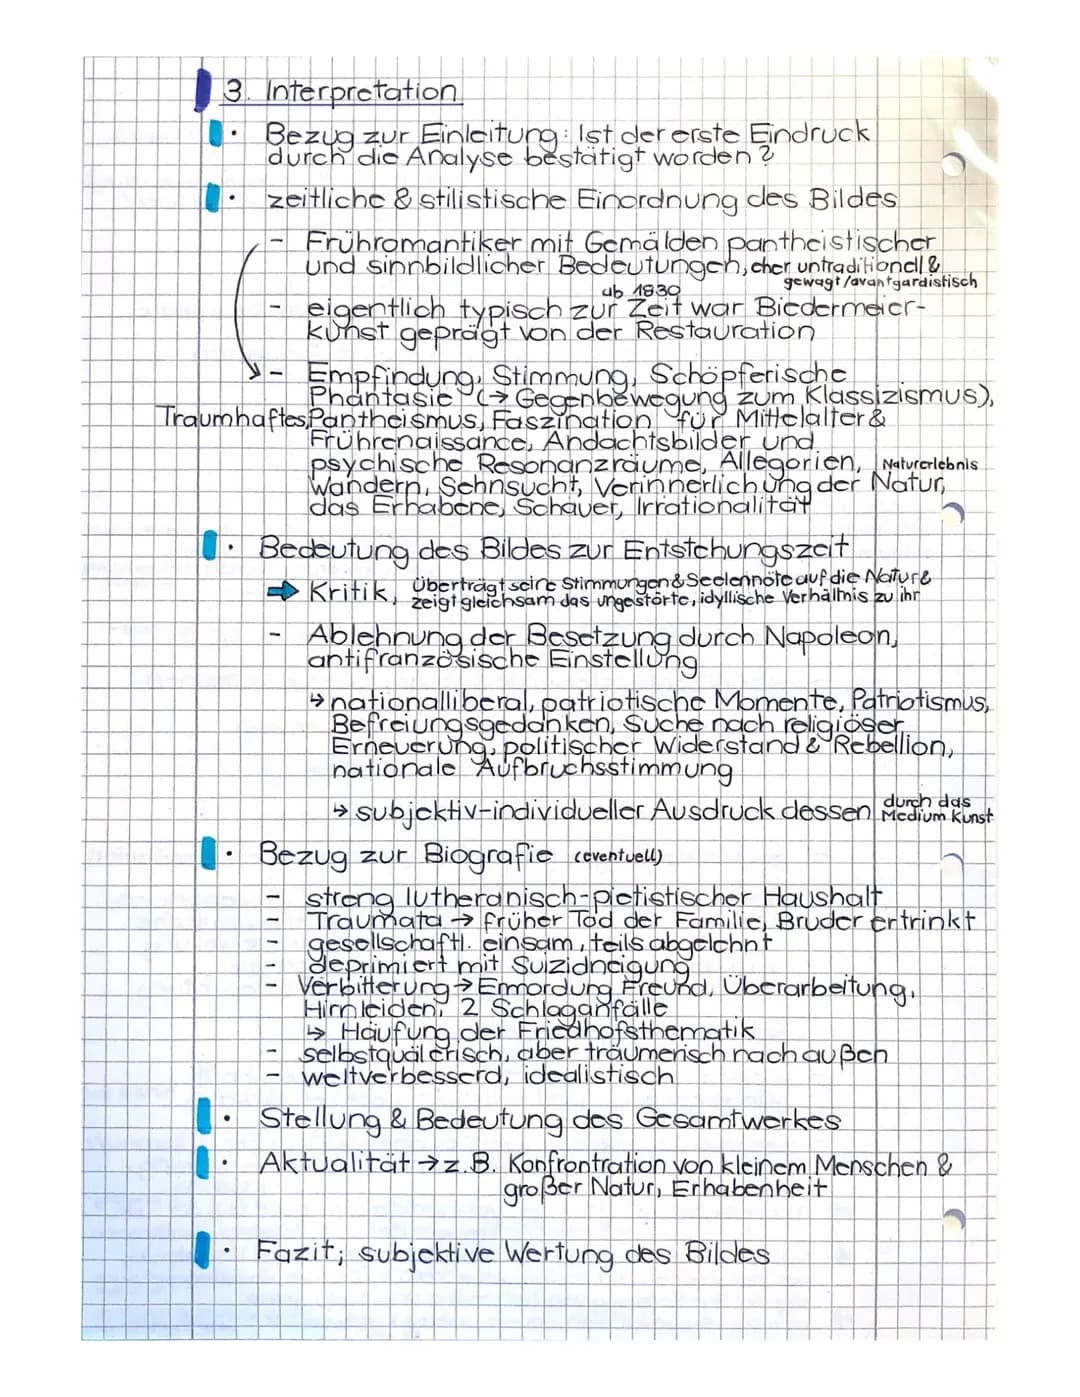 3. Interpretation
• Bezug zur Einleitung: Ist der erste Eindruck
durch die Analyse bestätigt worden?
• zeitliche & stilistische Einordnung des Bildes
- Frühromantiker mit Gemälden pantheistischer
und sinnbildlicher Bedeutungen, eher untraditionell &
gewagt/avantgardistisch
ab 1830
- eigentlich typisch zur Zeit war Biedermeier-
kunst geprägt von der Restauration
- Empfindung, Stimmung, Schöpferische
Phantasie (→ Gegenbewegung zum Klassizismus),
Traumhaftes, Pantheismus, Faszination für Mittelalter &
Frührenaissance, Andachtsbilder und
psychische Resonanzräume, Allegorien, Naturerlebnis
Wandern, Sehnsucht, Verinnerlichung der Natur,
das Erhabene, Schauer, Irrationalität
• Bedeutung des Bildes zur Entstehungszeit
➡ Kritik, überträgt seine Stimmungen & Seelennöte auf die Natur &
zeigt gleichsam das ungestörte, idyllische Verhältnis zu ihr
- Ablehnung der Besetzung durch Napoleon,
antifranzösische Einstellung
↳ nationalliberal, patriotische Momente, Patriotismus,
Befreiungsgedanken, Suche nach religiöser
Erneuerung, politischer Widerstand & Rebellion,
nationale Aufbruchsstimmung
↳ subjektiv-individueller Ausdruck dessen durch das
Medium Kunst
• Bezug zur Biografie (eventuell)
- streng lutheranisch-pietistischer Haushalt
- Traumata → früher Tod der Familie, Bruder ertrinkt
- gesellschaftl. einsam, teils abgelehnt
- deprimiert mit Suizidneigung
- Verbitterung → Ermordung Freund, Überarbeitung,
Hirnleiden, 2 Schlaganfälle
↳ Häufung der Friedhofsthematik
- selbstquälerisch, aber träumerisch nach außen
- weltverbesserd, idealistisch
• Stellung & Bedeutung des Gesamtwerkes
• Aktualität → z.B. Konfrontration von kleinem Menschen &
großer Natur, Erhabenheit
• Fazit; subjektive Wertung des Bildes